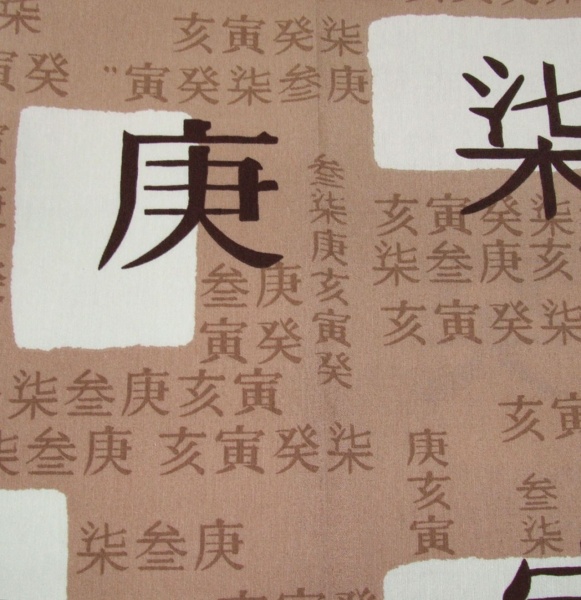 亥寅癸柒
寅癸
寅癸柒叁庚
柒
庚
叁柒庚亥寅癸
亥寅癸柒
柒叁庚亥
叁庚
寅癸
亥寅癸柒
柒叁庚亥寅
亥寅
柒叁庚
亥寅癸柒
庚亥寅
叁柒
柒叁庚